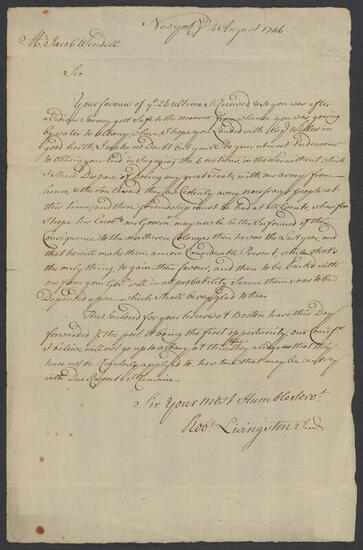 New york ye 4 August 1746
Mr Jacob Wendell
Sir
Your favour of ye 26 ultimo I Received & So you was after
a Tedious Journey gott Safe to the manner from whence you was going
by water to Albany, where I hope you Landed with Coll Welles in
good health, I make no Doubt but you'll do your utmost Endeavor
to obtain your End in Engaging the 6 nations in the war without which
I Shall Dispare of Doing any great feats with our army from
hence, & the Southward, they are Certenly a very necessary people at
this time, and there friendship must be had at all Events, wherefore
I hope his Excellcy our Governr may now be better Informed of there
Consequence to the northern Colonies then he was the Last year, and
that he will make them a more Considerable Present, which that's
the only thing to gain there favour, and then to be backed with
me from your Govr will in all probability Secure them so as to be
Depended upon which Shall be very glad to hear
The Inclosed for your house at Boston have this Day
forwarded & the post it being the first opportunity, our
I believe will not go up to Albany as they alledge that they
have not be Regularly applyed to, how true that may be
with Due Respect I Remaine
Sir Your most Humble Servt
Robt Livingston Junr